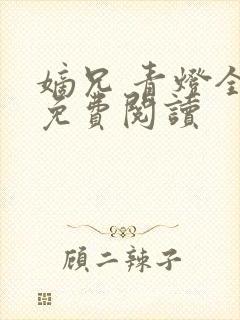 嫡兄 青燈全
免費閱讀
顧二辣子